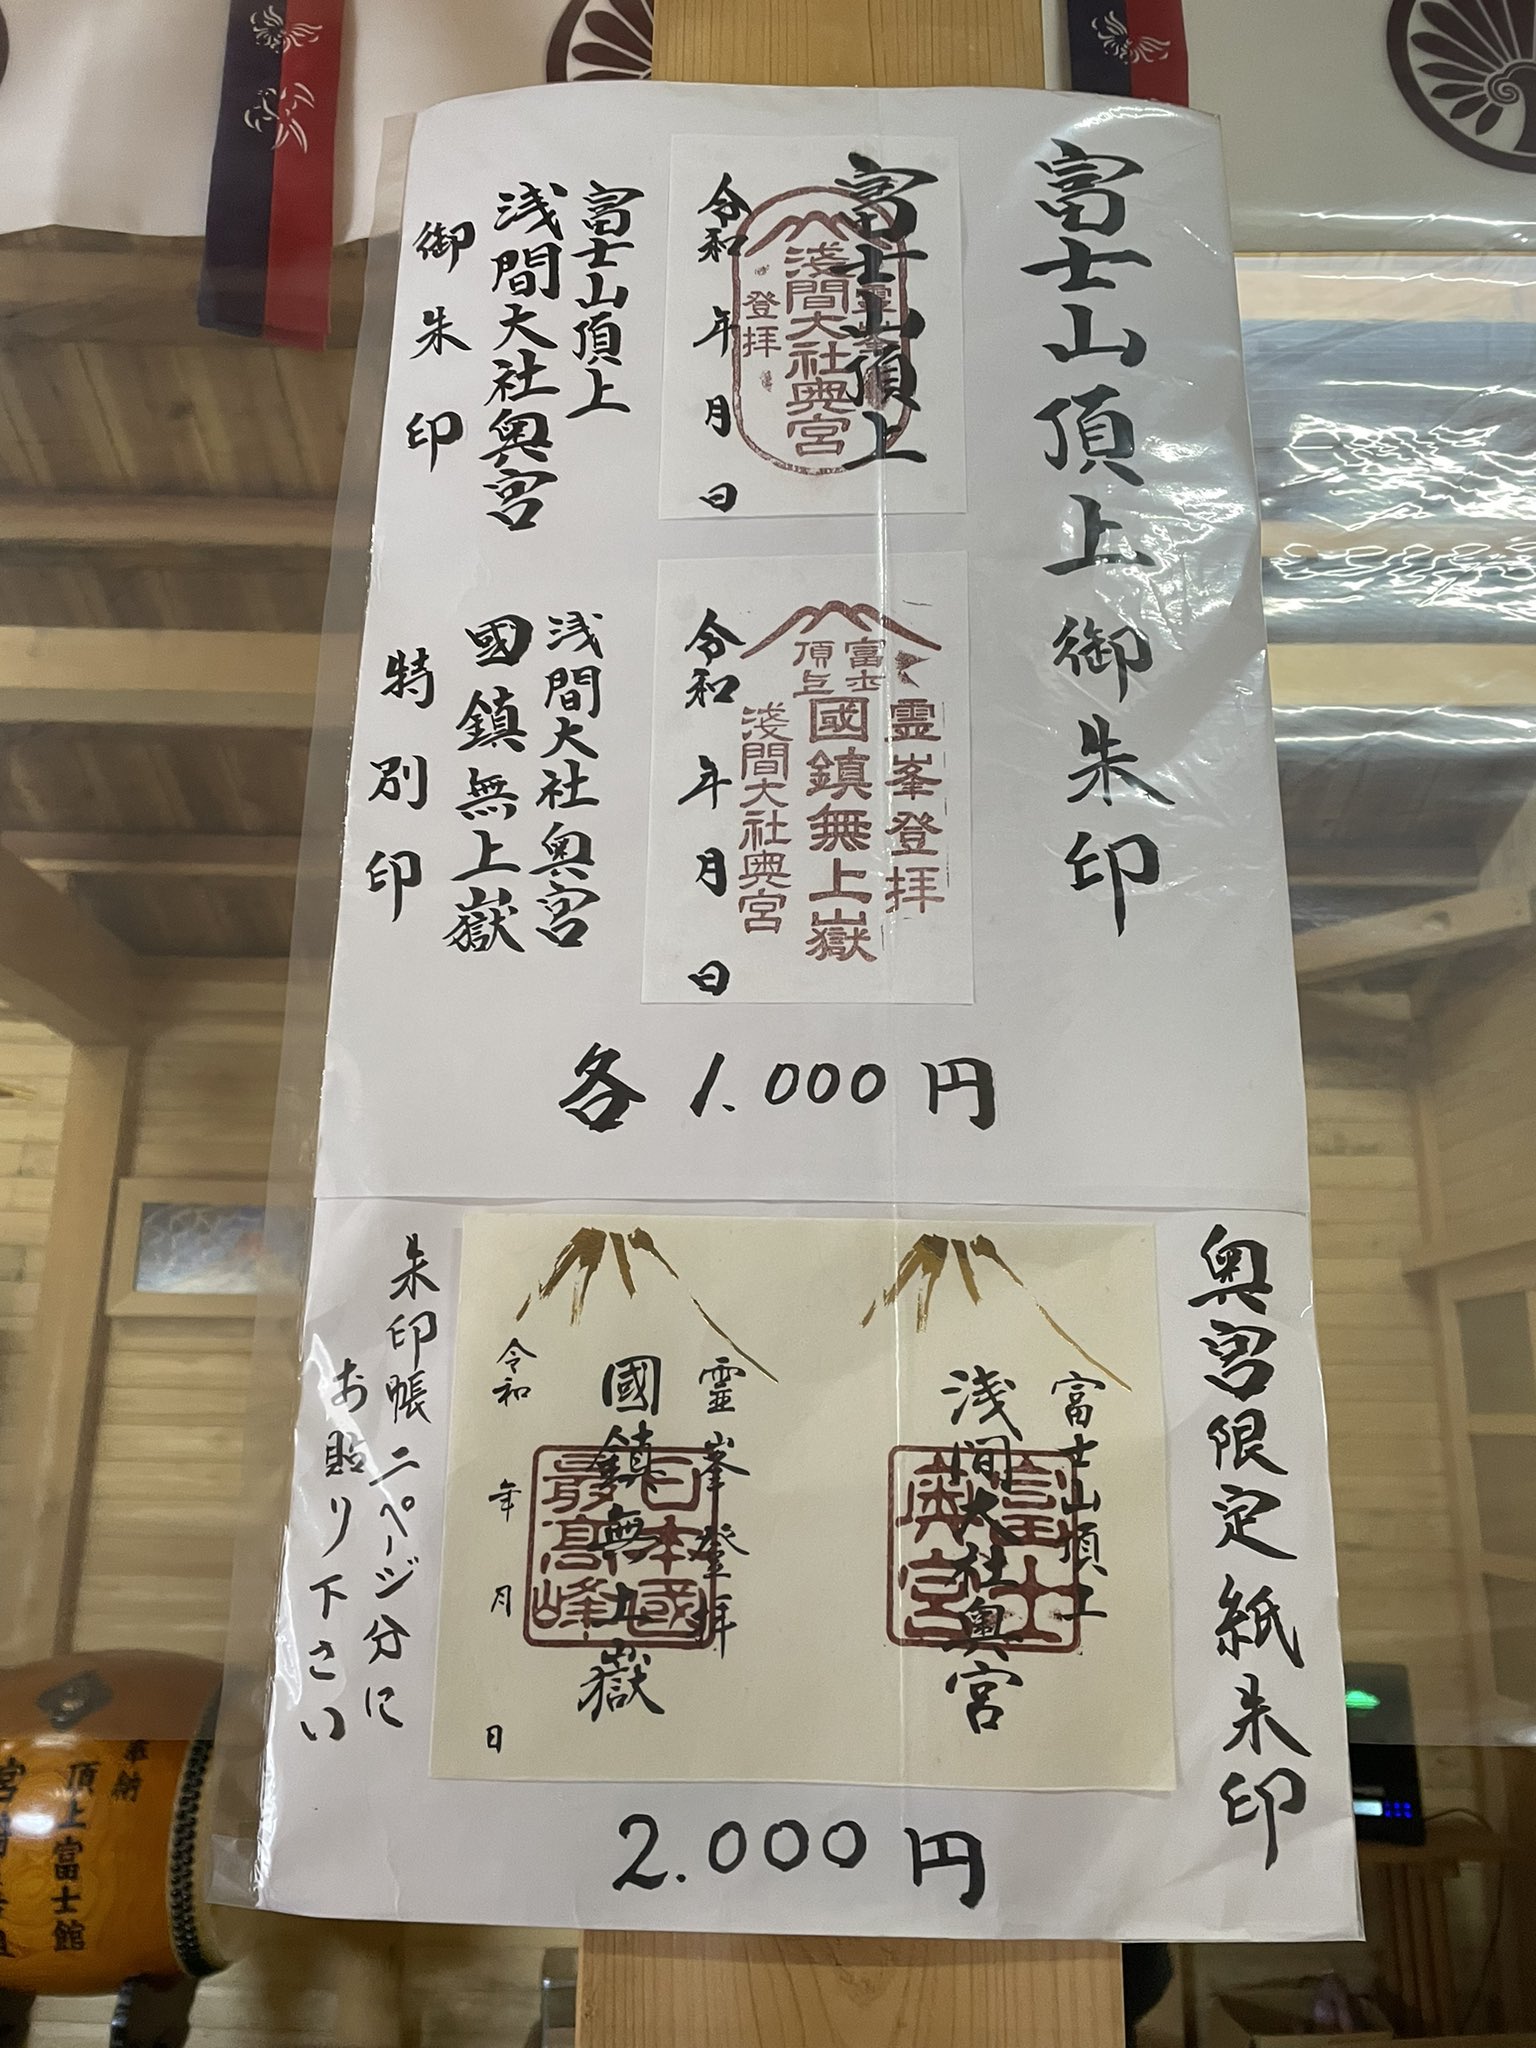 富士山頂上御朱印
富士山頂上
霊峯
淺間大社奥宮
登拝
令和 年 月 日
富士山頂上
浅間大社奥宮
御朱印
霊峯登拝
富士
頂上
國鎮無上嶽
淺間大社奥宮
令和 年 月 日
浅間大社奥宮
國鎮無上嶽
特別印
各1.000円
奥宮限定紙朱印
富士山頂上
浅間大社奥宮
富士
奥宮
霊峯登拝
國鎮無上嶽
日本國
最高峰
令和 年 月 日
朱印帳二ページ分に
お貼り下さい
2.000円
奉納
頂上富士館